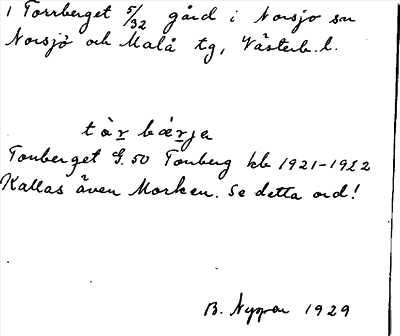 1 Torrberget 5/32 gård i Norsjö sn
Norsjö och Malå tg, Västerb. l.
tàrbærja
Tonberget G. 50 Tonberg kb 1921-1922
Kallas även Morken. Se detta ord!
B. 1929